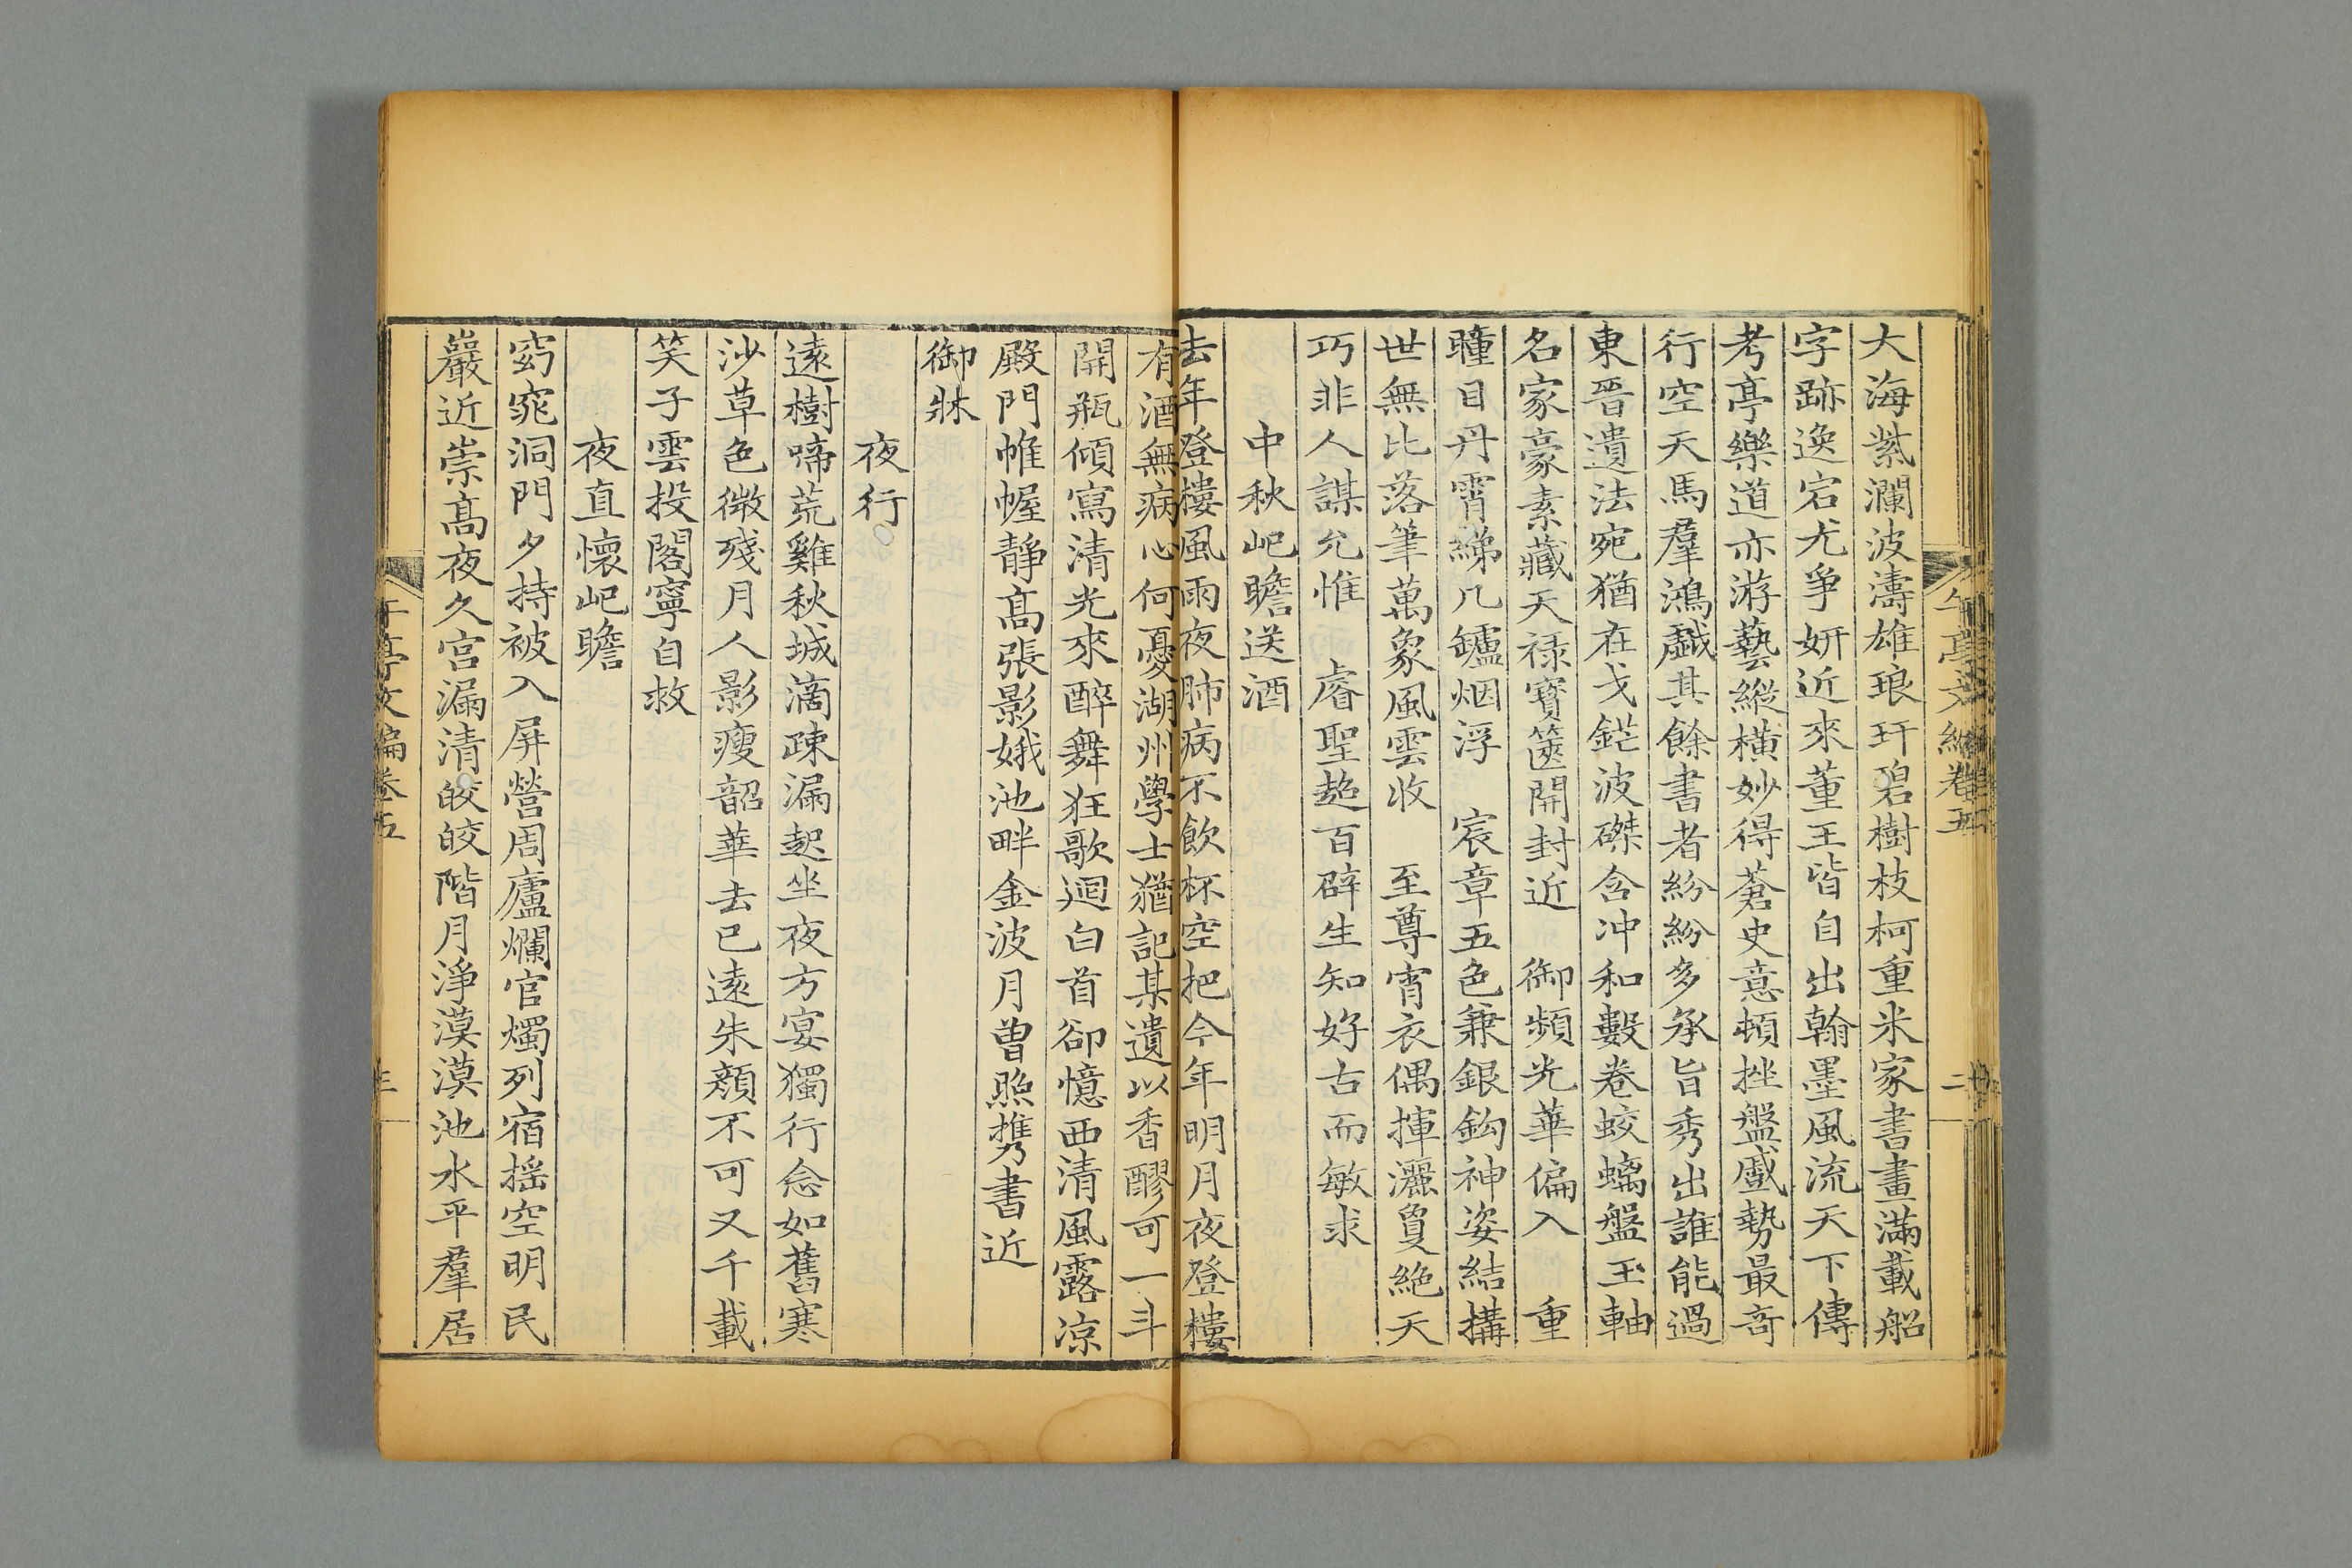 午亭文編卷五
二
大海紫瀾波濤雄琅玕碧樹枝柯重米家書畫滿載船
字跡逸宕尤爭妍近來董王皆自出翰墨風流天下傳
考亭樂道亦游藝縱橫妙得蒼史意頓挫盤盛勢最奇
行空天馬羣鴻戲其餘書者紛紛多承旨秀出誰能過
東晉遺法宛猶在戈鋩波磔含冲和數卷蛟螭盤玉軸
名家豪素藏天祿寶篋開封近 御頻光華偏入 重
瞳目丹霄綈几鑪烟浮 宸章五色兼銀鈎神姿結搆
世無比落筆萬象風雲收 至尊宵衣偶揮灑敻絶天
巧非人謀允惟 睿聖超百辟生知好古而敏求
中秋屺瞻送酒
去年登樓風雨夜肺病不飲杯空把今年明月夜登樓
有酒無病心何憂湖州學士猶記某遺以香醪可一斗
開瓶傾寫清光來醉舞狂歌迴白首卻憶西清風露凉
殿門帷幄靜髙張影娥池畔金波月曾照携書近
御牀
夜行
遠樹啼荒雞秋城滴疎漏起坐夜方宴獨行念如舊寒
沙草色微殘月人影瘦韶華去已遠朱顔不可又千載
笑子雲投閣寧自救
夜直懷屺瞻
窈窕洞門夕持被入屏營周廬爛官燭列宿揺空明民
巖近崇髙夜久宫漏清皎皎階月淨漠漠池水平羣居
午亭文編卷五
三